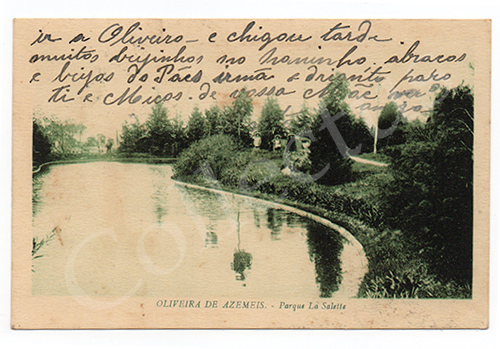 ir a Oliveiro - e chigou tarde
muitos beijinhos no naninho, abracos
e beijos do Pàes irmã e
ti e Micos. de vossa Mãe
OLIVEIRA DE AZEMEIS. - Parque La Salette